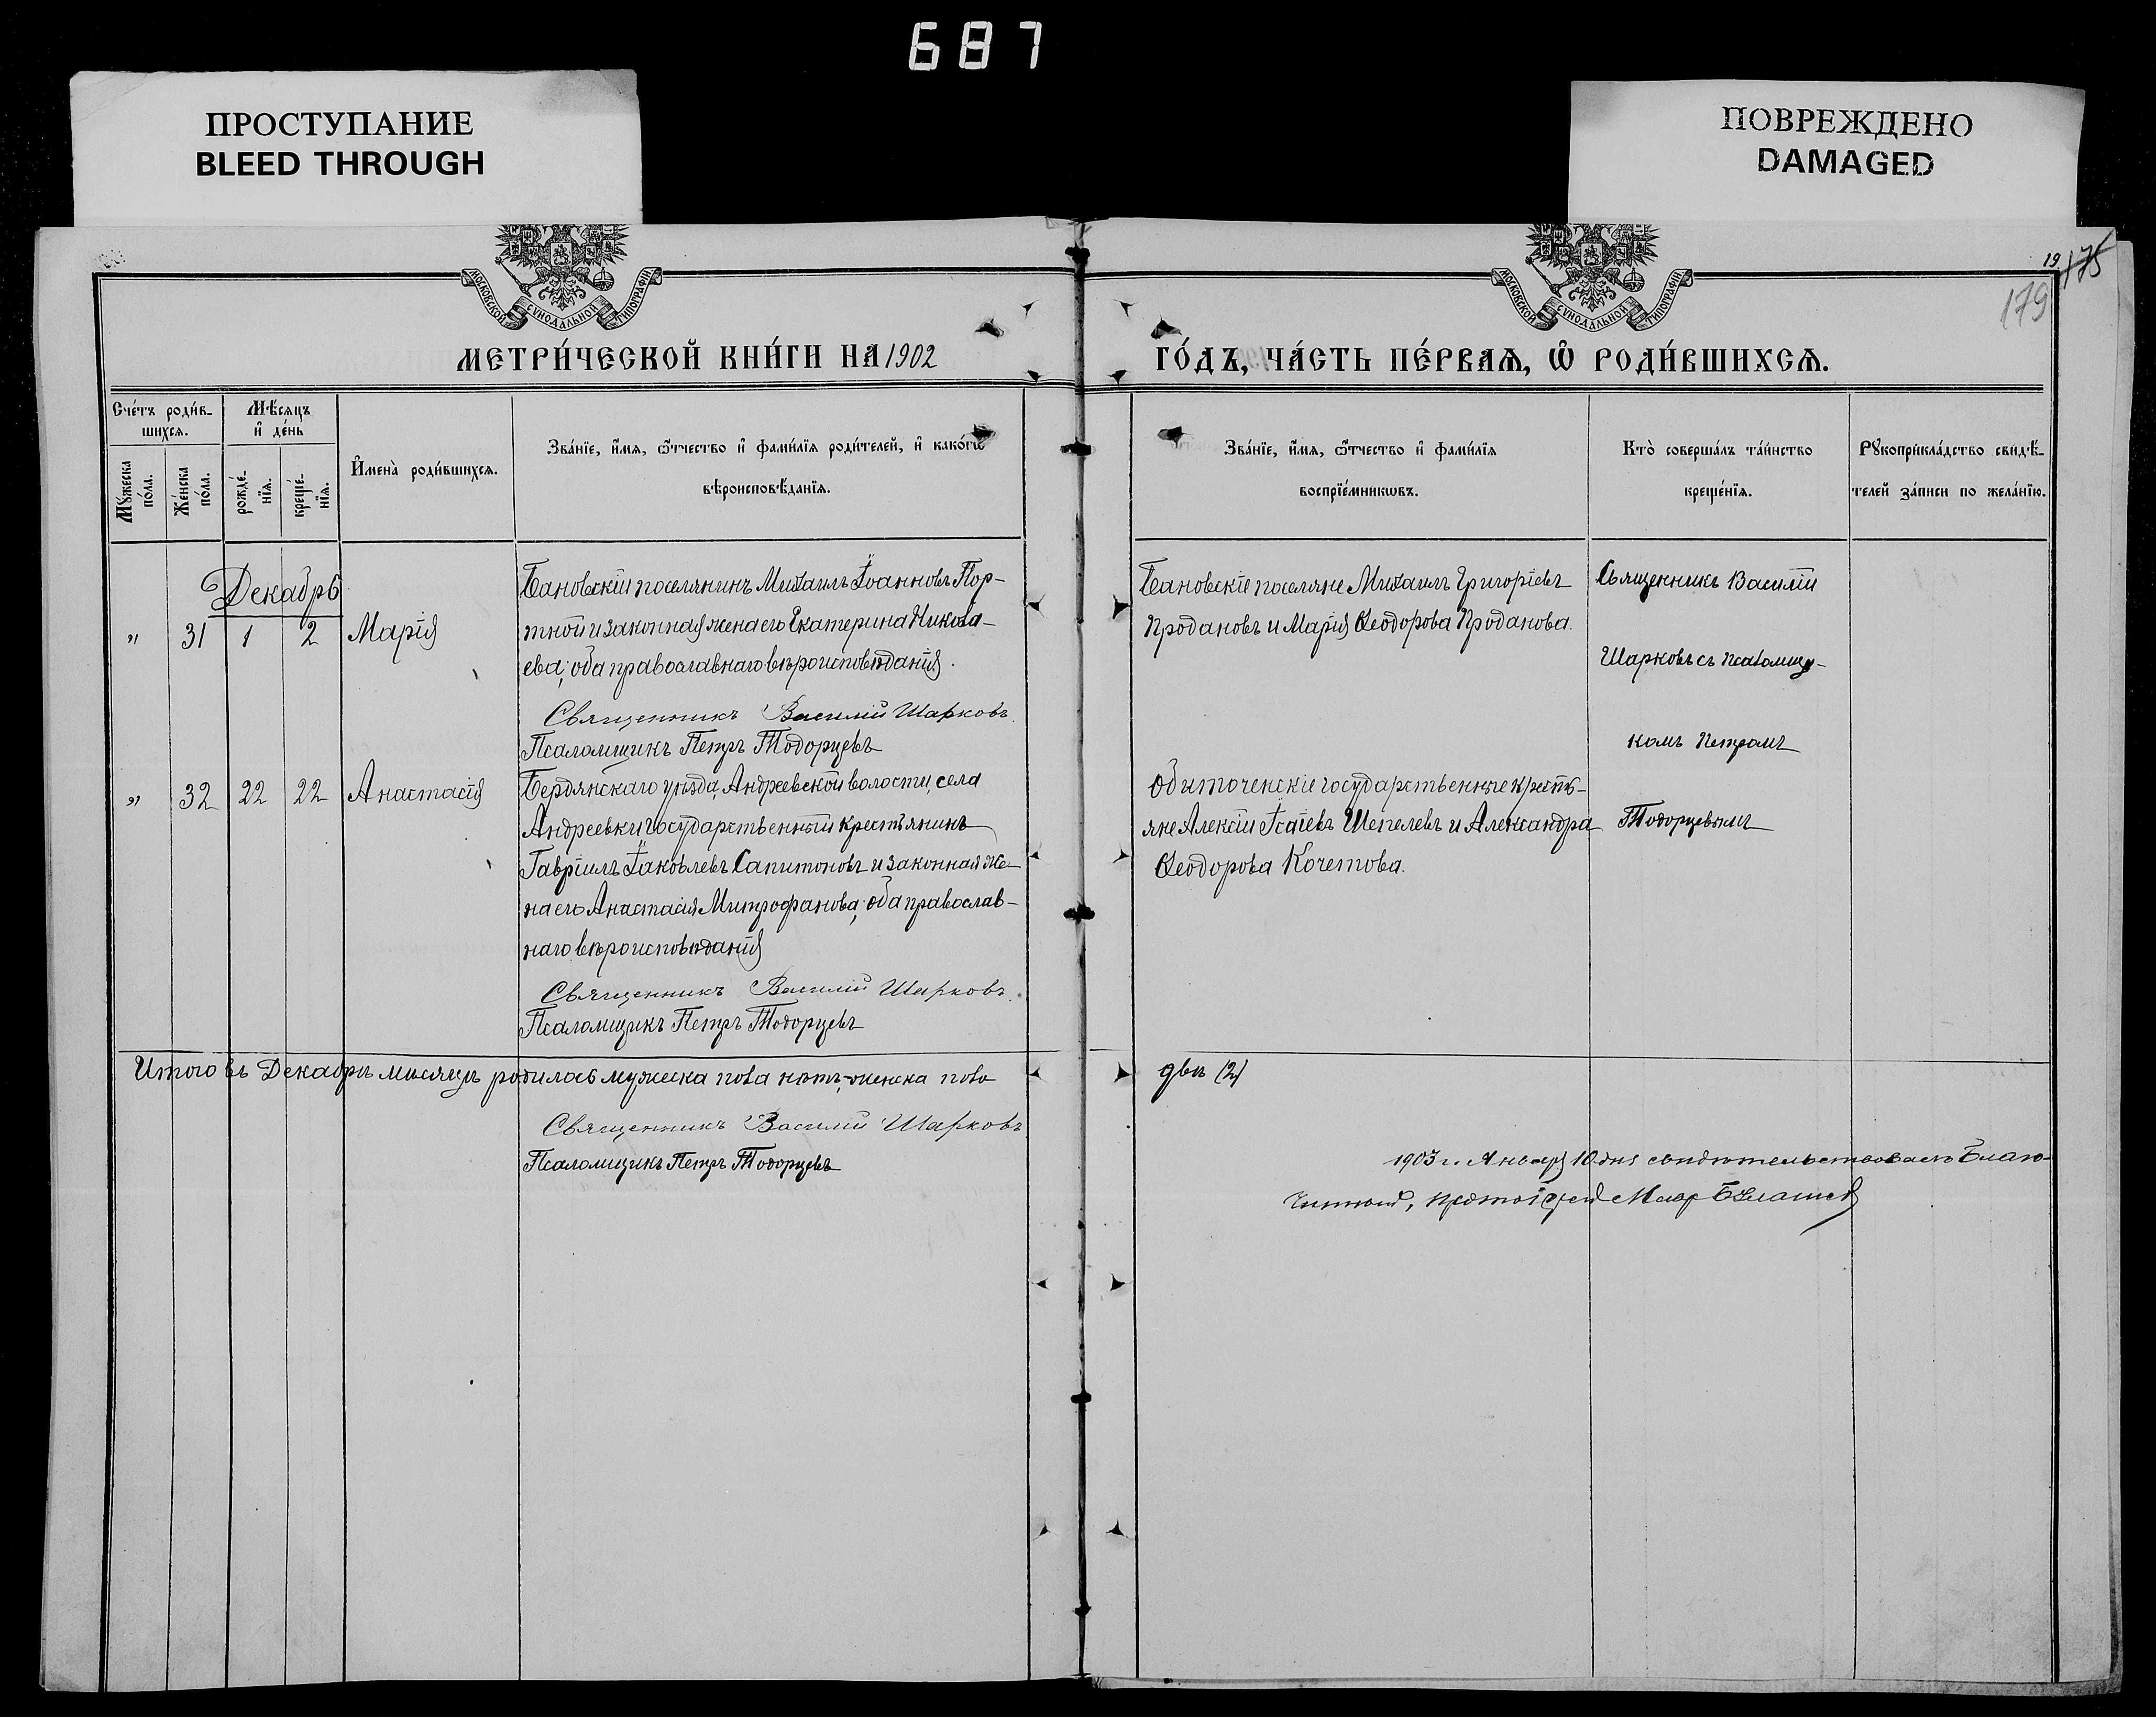 687
ПРОСТУПАНИЕ
BLEED THROUGH
ПОВРЕЖДЕНО
DAMAGED
МОСКОВСКОЙ СѴНОДАЛЬНОЙ ТИПОГРАФІИ
МОСКОВСКОЙ СѴНОДАЛЬНОЙ ТИПОГРАФІИ
19 175
179
МЕТРИ́ЧЕСКОЙ КНИ́ГИ НА 1902
ГО́ДЪ, ЧА́СТЬ ПЕ́РВАѦ, Ѡ҆ РОДИ́ВШИХСѦ.
Сче́тъ роди́в-
шихсѧ.
Мꙋ́жеска
по́ла.
Же́нска
по́ла.
Мѣ́сѧцъ
и҆ де́нь
рожде́-
нїѧ.
креще́-
нїѧ.
И҆мена̀ роди́вшихсѧ.
Зва́нїе, и҆́мѧ, ѻ҆́тчество и҆ фами́лїѧ роди́телей, и҆ како́гѡ
вѣроисповѣ́данїѧ.
Зва́нїе, и҆́мѧ, ѻ҆́тчество и҆ фами́лїѧ
воспрїе́мникѡвъ.
Кто̀ соверша́лъ та́инство
креще́нїѧ.
Рꙋкоприкла́дство свидѣ́-
телей за́писи по жела́нїю.
Декабрь
" 31 1 2 Марія
Бановскій поселянинъ Михаилъ Іоанновъ Пор-
тной и законная жена его Екатерина Никола-
ева; оба православнаго вѣроисповѣданія.
Священникъ Василій Шарковъ.
Псаломщикъ Петръ Тодорцевъ
Бановскіе поселяне Михаилъ Григоріевъ
Продановъ и Марія Ѳеодорова Проданова.
Священникъ Василій
Шарковъ съ псаломщи-
комъ Петромъ
Тодорцевымъ
" 32 22 22 Анастасія
Бердянскаго уѣзда, Андреевской волости, села
Андреевки государственный крестьянинъ
Гавріилъ Іаковлевъ Сапитоновъ и законная же-
на его Анастасія Митрофанова; оба православ-
наго вѣроисповѣданія
Священникъ Василій Шарковъ.
Псаломщикъ Петръ Тодорцевъ
Обиточенскіе государственные кресть-
яне Алексій Ісаіевъ Шепелевъ и Александра
Ѳеодорова Кочетова.
Итого въ Декабрѣ мѣсяцѣ родилось мужеска пола нѣтъ, женска пола
двѣ (2)
Священникъ Василій Шарковъ
Псаломщикъ Петръ Тодорцевъ
1903 г. Января 10 дня свидѣтельствовалъ Благо-
чинный, протоіерей